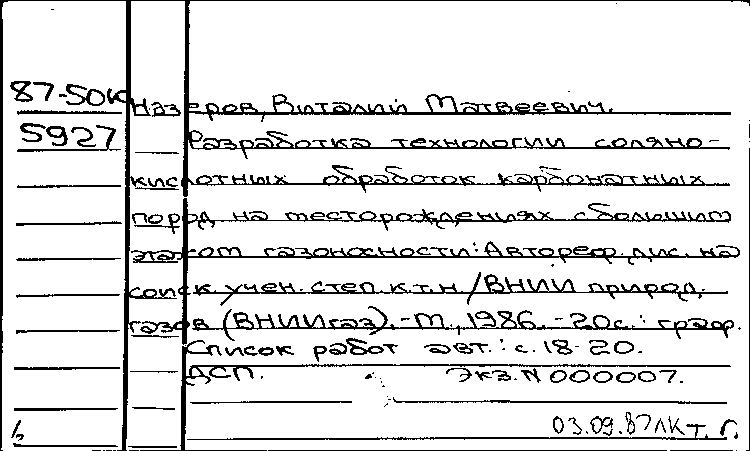 87-50к Назаров, Виталий Матвеевич.
5927 Разработка технологии соляно-
кислотных обработок карбонатных
пород на месторождениях с большим
этажом газоносности: Автореф. дис. на
соиск. учен. степ. к.т.н. / ВНИИ природ.
газов (ВНИИгаз). - М., 1986. - 20с.: граф.
Список работ авт.: с. 18-20.
ДСП. Экз. N 000007.
03.09.87